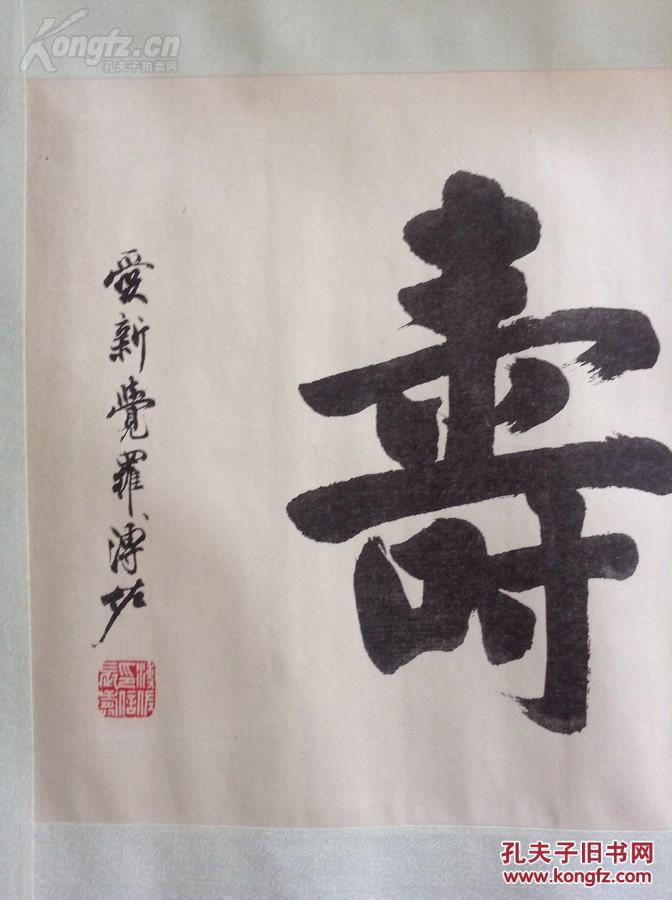 Kongfz.cn
孔夫子拍卖网
壽
愛新覺羅溥佐
孔夫子旧书网
www.kongfz.com